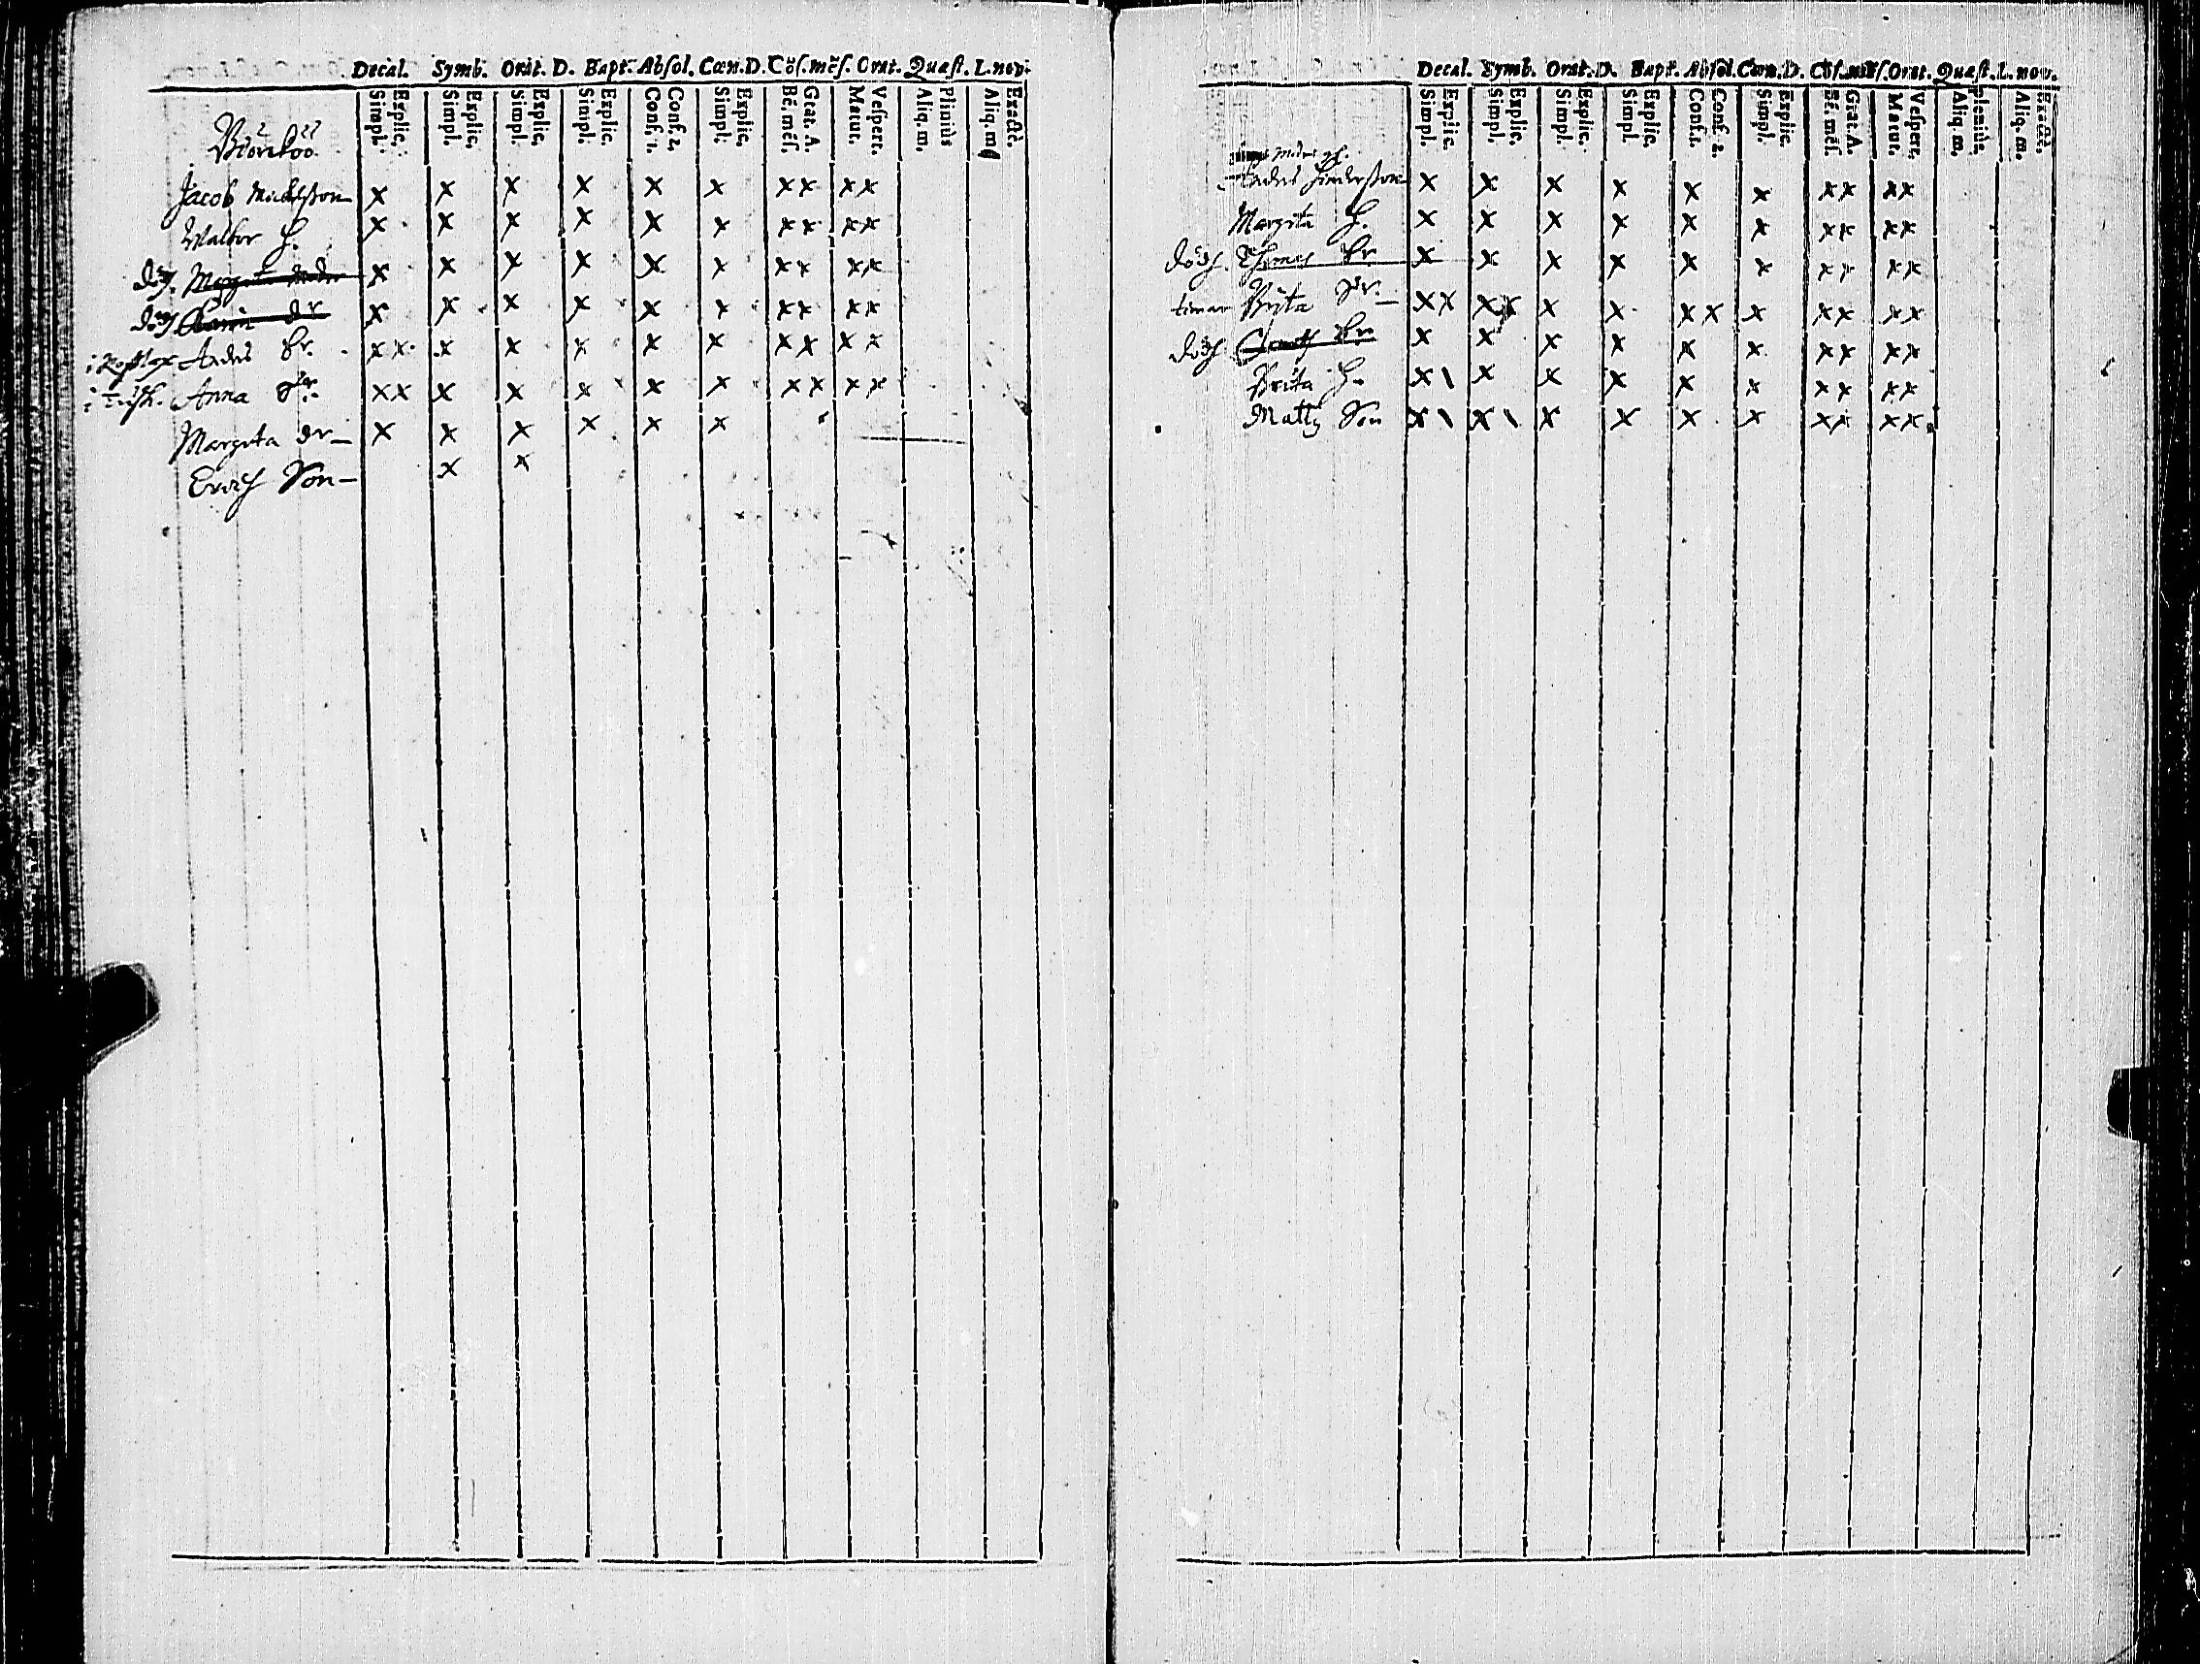 Decal. Symb. Orat. D. Bapt. Absol. Cœn. D. Cōs. mēs. Orat. Quæst. L. nov.
Explic. Simpl. Explic. Simpl. Explic. Simpl. Explic. Simpl. Conf. 2. Conf. 1. Explic. Simpl. Grat. A. Bē. mēs. Vespert. Matut. Pleniùs Aliq. m. Exactè. Aliq. m.
Jacob Michelsson x x x x x x xx xx
Walbor H. x x x x x x xx xx
död. Margeta x x x x x x xx xx
död Karin dr x x x x x x xx xx
Anders Br. xx x x x x x xx xx
Anna Sr. xx x x x x x xx xx
Margeta dr x x x x x x
Erich Son x x
Decal. Symb. Orat. D. Bapt. Absol. Cœn. D. Cōs. mēs. Orat. Quæst. L. nov.
Explic. Simpl. Explic. Simpl. Explic. Simpl. Explic. Simpl. Conf. 2. Conf. 1. Explic. Simpl. Grat. A. Bē. mēs. Vespert. Matut. Pleniùs Aliq. m. Exactè. Aliq. m.
Anders Hindersson x x x x x x xx xx
Margeta H. x x x x x x xx xx
död. Thomas Br x x x x x x xx xx
Brita Sr. xx xx x x xx x xx xx
död Br x x x x x x xx xx
Brita H. x \ x x x x x xx xx
Matts Son x \ x \ x x x x xx xx